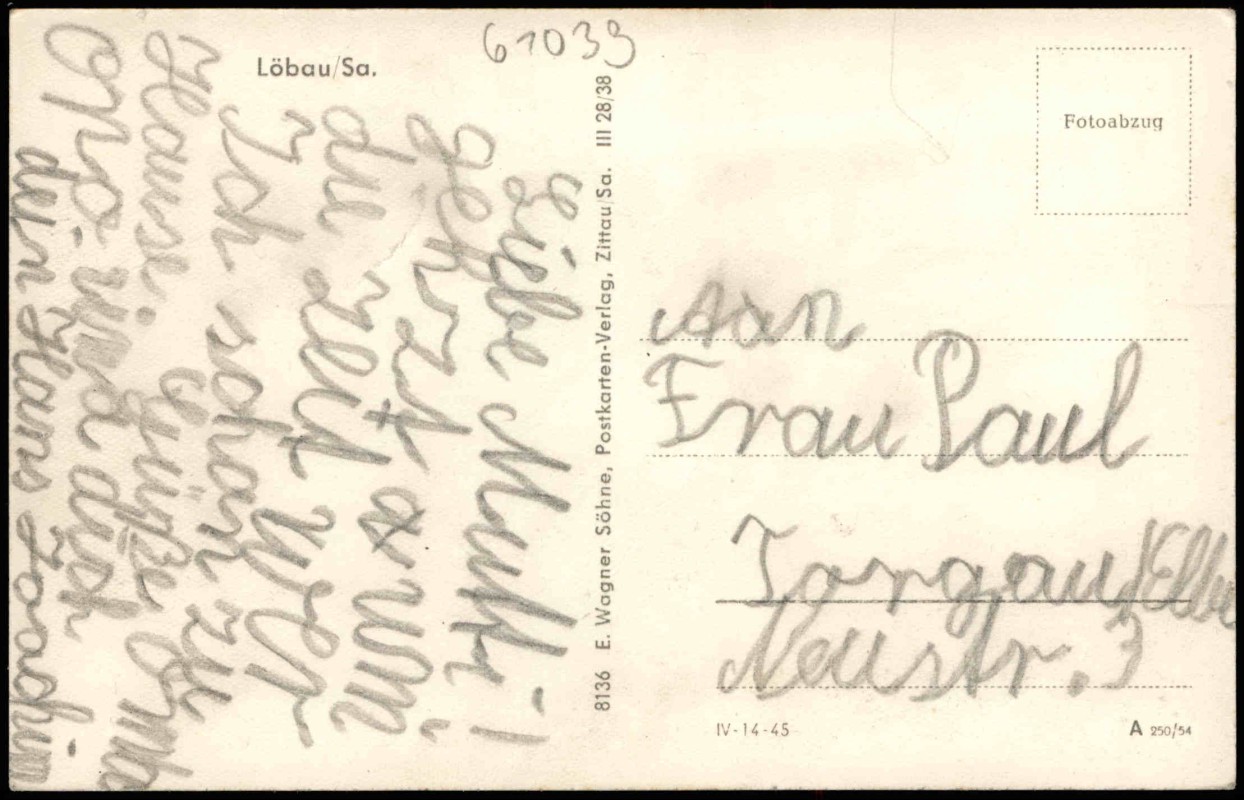 Löbau/Sa.
61039
Liebe Mutti!
die Zeit
Ich schon zu
Hause grüße Oma
Opa und auch
dein Hans Joachim
8136 E. Wagner Söhne, Postkarten-Verlag, Zittau/Sa. III 28/38
Fotoabzug
Aan
Frau Paul
Torgau/Elbe
Neustr. 3
IV-14-45
A 250/54